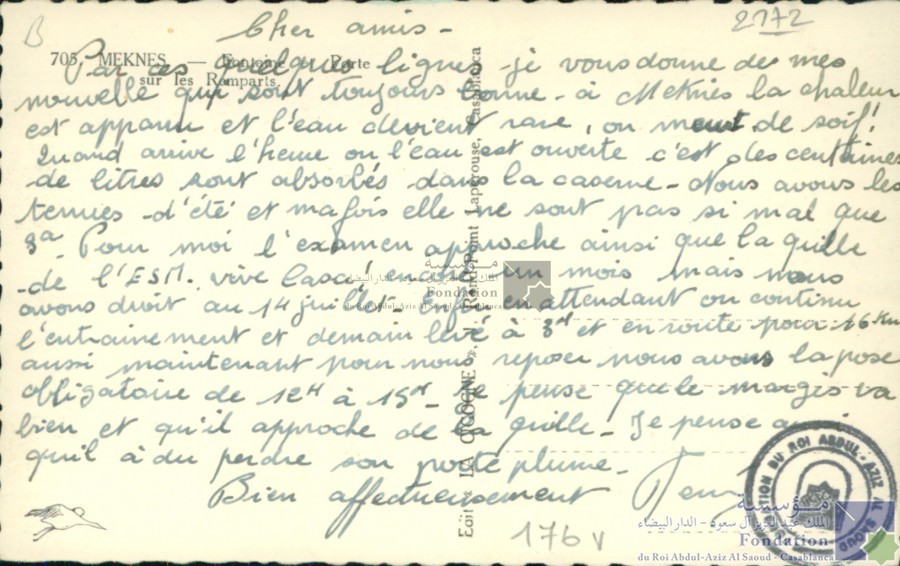 B
2172
Cher amis -
705. MEKNES. — Fontaine Porte
sur les Remparts.
Par ces quelques lignes je vous donne de mes
nouvelle qui sont toujours bonne - à Meknès la chaleur
est apparu et l'eau devient rare, on meurt de soif!
Quand arrive l'heure ou l'eau est ouverte c'est des centaines
de litres sont absorbés dans la caserne - Nous avons les
tenues d'été et ma fois elle ne sont pas si mal que
ça Pour moi l'examen approche ainsi que la quille
de l'ESM. vive encore un mois mais nous
avons droit au 14 juillet. Enfin en attendant on continu
l'entrainement et demain levé à 3H et en route pour 16 Km
aussi maintenant pour nous reposer nous avons la pose
obligatoire de 12H à 15H - Je pense que le margis va
bien et qu'il approche de la quille - Je pense
qu'il à du perdre son porte plume -
Bien affectueusement
Edit. « LA CIGOGNE », Rond-Point Lapérouse, Casablanca
176 v
مؤسسة
الملك عبد العزيز آل سعود - الدار البيضاء
Fondation
du Roi Abdul-Aziz Al Saoud - Casablanca
FONDATION DU ROI ABDUL-AZIZ AL SAOUD
مؤسسة
الملك عبد العزيز آل سعود - الدار البيضاء
Fondation
du Roi Abdul-Aziz Al Saoud - Casablanca